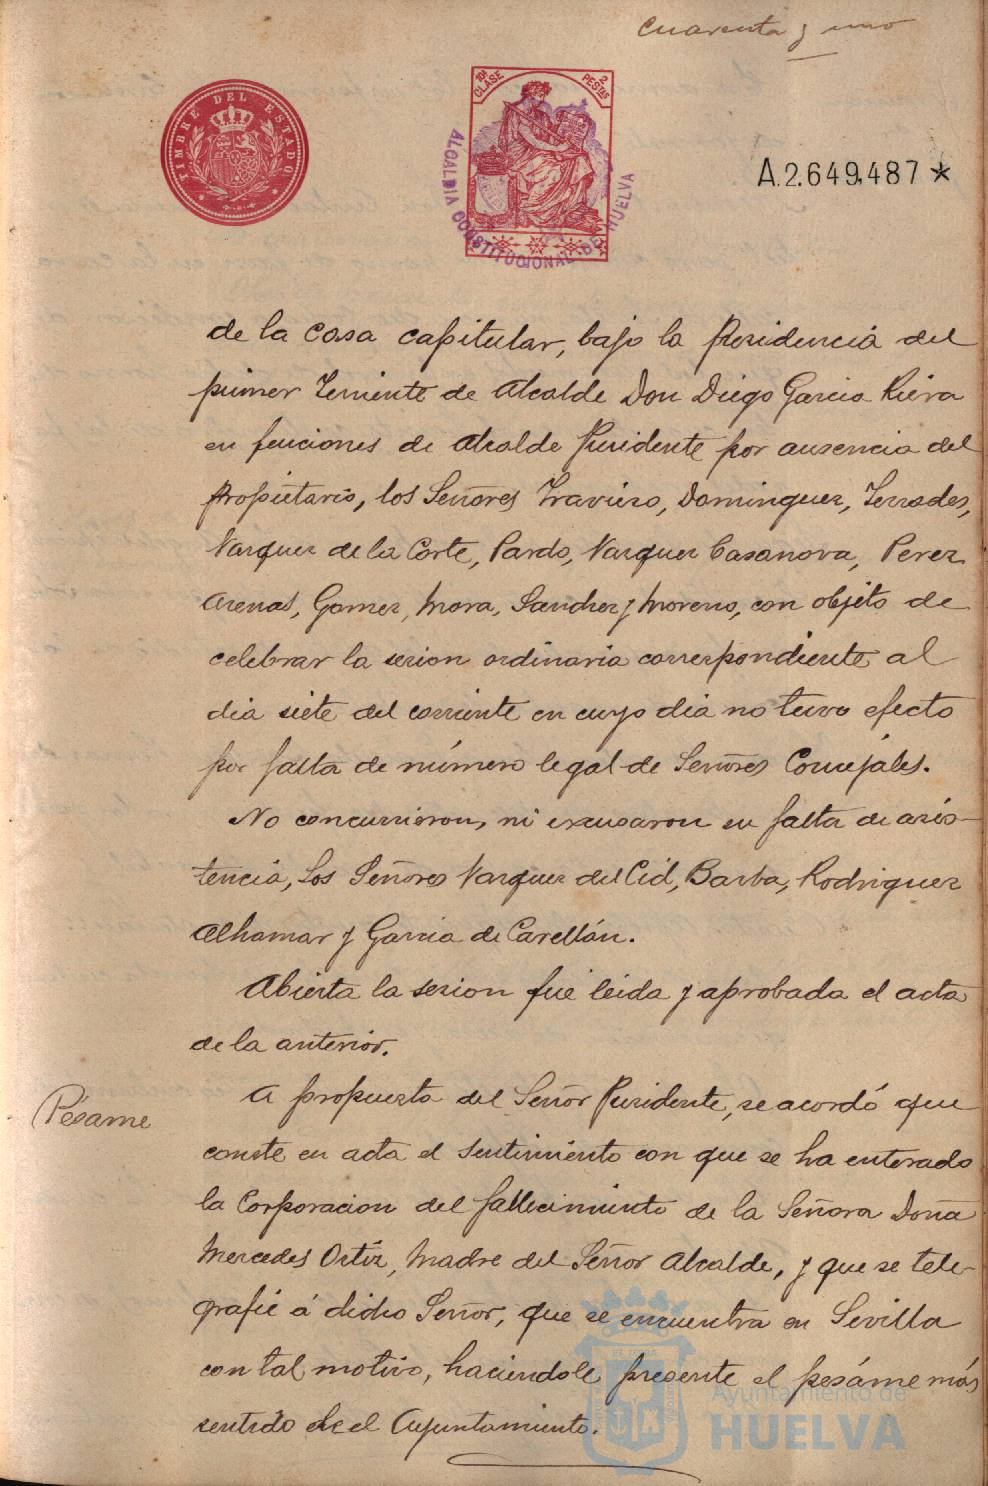 cuarenta y uno
TIMBRE DEL ESTADO
10ª CLASE
2 PESETAS
ALCALDIA CONSTITUCIONAL DE HUELVA
A.2.649.487 *
de la casa capitular, bajo la Presidencia del
primer Teniente de Alcalde Don Diego Garcia Riera
en funciones de Alcalde Presidente por ausencia del
Propietario, los Señores Traviero, Dominguez, Terrades,
Vazquez de la Corte, Pardo, Vazquez Casanova, Perez
Arenas, Gomez, Mora, Sanchez y Moreno, con objeto de
celebrar la sesion ordinaria correspondiente al
dia siete del corriente en cuyo dia no tuvo efecto
por falta de número legal de Señores Concejales.
No concurrieron, ni excusaron su falta de asis-
tencia, los Señores Vazquez del Cid, Barba, Rodriguez
Alhamar y Garcia de Carellán.
Abierta la sesion fué leida y aprobada el acta
de la anterior.
Pésame
A propuesta del Señor Presidente, se acordó que
conste en acta el sentimiento con que se ha enterado
la Corporacion del fallecimiento de la Señora Doña
Mercedes Ortiz, madre del Señor Alcalde, y que se tele-
grafie á dicho Señor, que se encuentra en Sevilla
con tal motivo, haciendole presente el pesáme más
sentido de el Ayuntamiento.
Ayuntamiento de
HUELVA